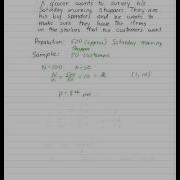 A grocer wants to survey his
Saturday morning shoppers. They are
his big spenders and he wants to
make sure they have the items
in the stores that his customers want
Population: 500 (approx) Saturday morning
Shopper
Sample: 50 customers
N = 500 n = 50
N/n = 500/50 = 10 = k (1, 10)